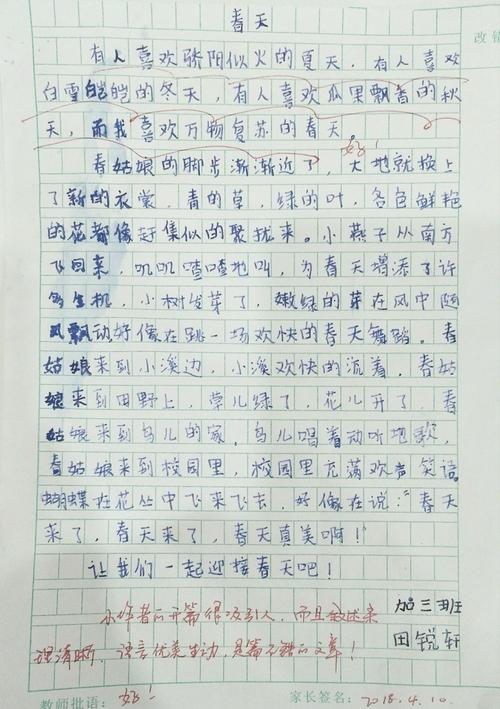 春天
改错
有人喜欢骄阳似火的夏天，有人喜欢
白雪皑皑的冬天，有人喜欢瓜果飘香的秋
天，而我喜欢万物复苏的春天。
好！
春姑娘的脚步渐渐近了，大地就换上
了新的衣裳，青的草，绿的叶，各色鲜艳
的花都像赶集似的聚拢来。小燕子从南方
飞回来，叽叽喳喳地叫，为春天增添了许
多生机，小树发芽了，嫩绿的芽在风中随
风飘动好像在跳一场欢快的春天舞蹈。春
姑娘来到小溪边，小溪欢快的沉着，春姑
娘来到田野上，草儿绿了，花儿开了，春
姑娘来到鸟儿的家，鸟儿唱着动听地歌，
春姑娘来到校园里，校园里充满欢声笑语。
蝴蝶在花丛中飞来飞去，好像在说："春天
来了，春天来了，春天真美啊！
让我们一起迎接春天吧！
小作者的开篇很吸引人，而且叙述条
理清晰，语言优美生动，是篇不错的文章！
加三班
田锐轩
教师批语：好！
家长签名：2018.4.10.